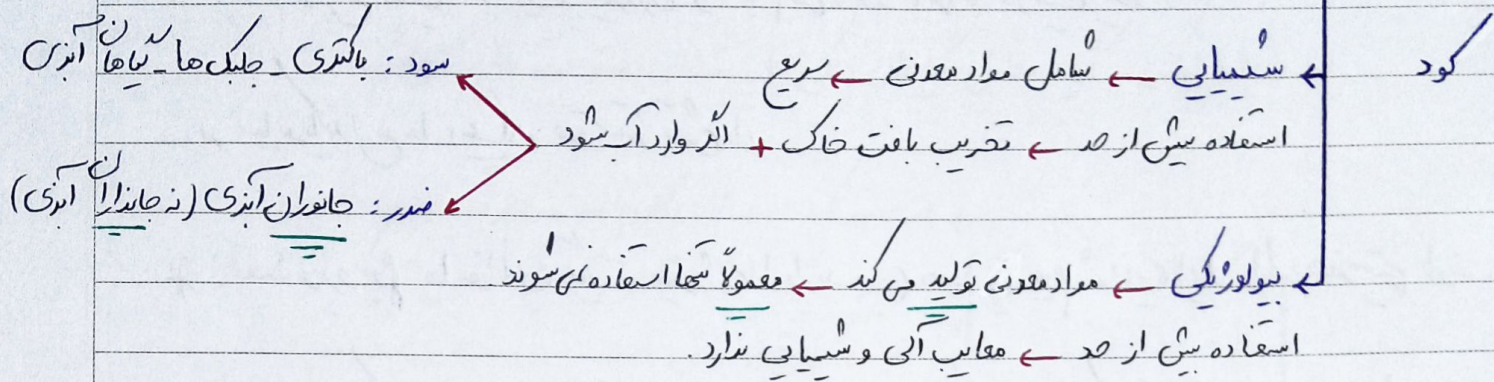 کود
← شیمیایی ← شامل مواد معدنی ← سریع
استفاده بیش از حد ← تخریب بافت خاک + اگر وارد آب شود
سود: باکتری - جلبک ها - گیاهان آبزی
ضرر: جانوران آبزی (نه جانداران آبزی)
← بیولوژیکی ← مواد معدنی تولید می کند ← معمولاً تنها استفاده نمی شوند
استفاده بیش از حد ← معایب آلی و شیمیایی ندارد.